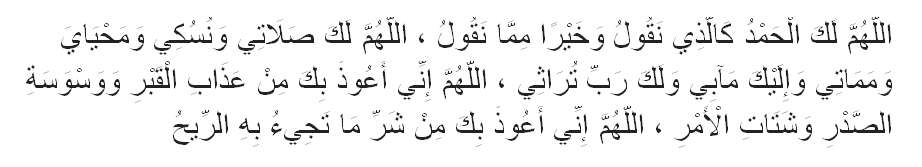 اللَّهُمَّ لَكَ الْحَمْدُ كَالَّذِي نَقُولُ وَخَيْرًا مِمَّا نَقُولُ ، اللَّهُمَّ لَكَ صَلَاتِي وَنُسُكِي وَمَحْيَايَ
وَمَمَاتِي وَإِلَيْكَ مَآبِي وَلَكَ رَبِّ تُرَاثِي ، اللَّهُمَّ إِنِّي أَعُوذُ بِكَ مِنْ عَذَابِ الْقَبْرِ وَوَسْوَسَةِ
الصَّدْرِ وَشَتَاتِ الْأَمْرِ ، اللَّهُمَّ إِنِّي أَعُوذُ بِكَ مِنْ شَرِّ مَا تَجِيءُ بِهِ الرِّيحُ